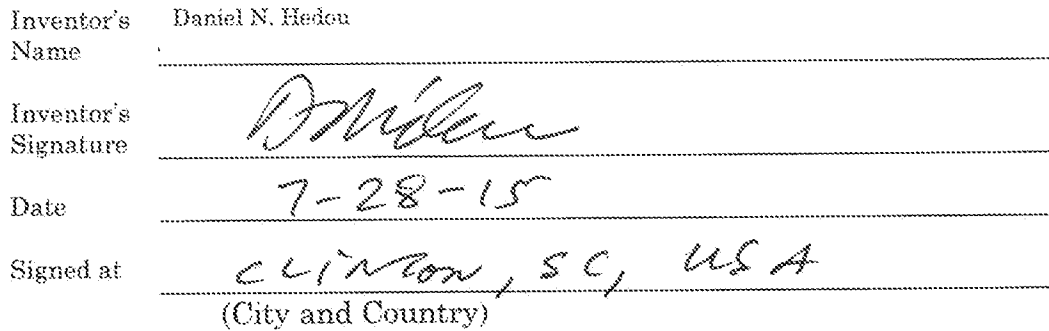 Inventor's Name Daniel N. Hedou
Inventor's Signature
Date 7-28-15
Signed at Clinton, SC, USA
(City and Country)